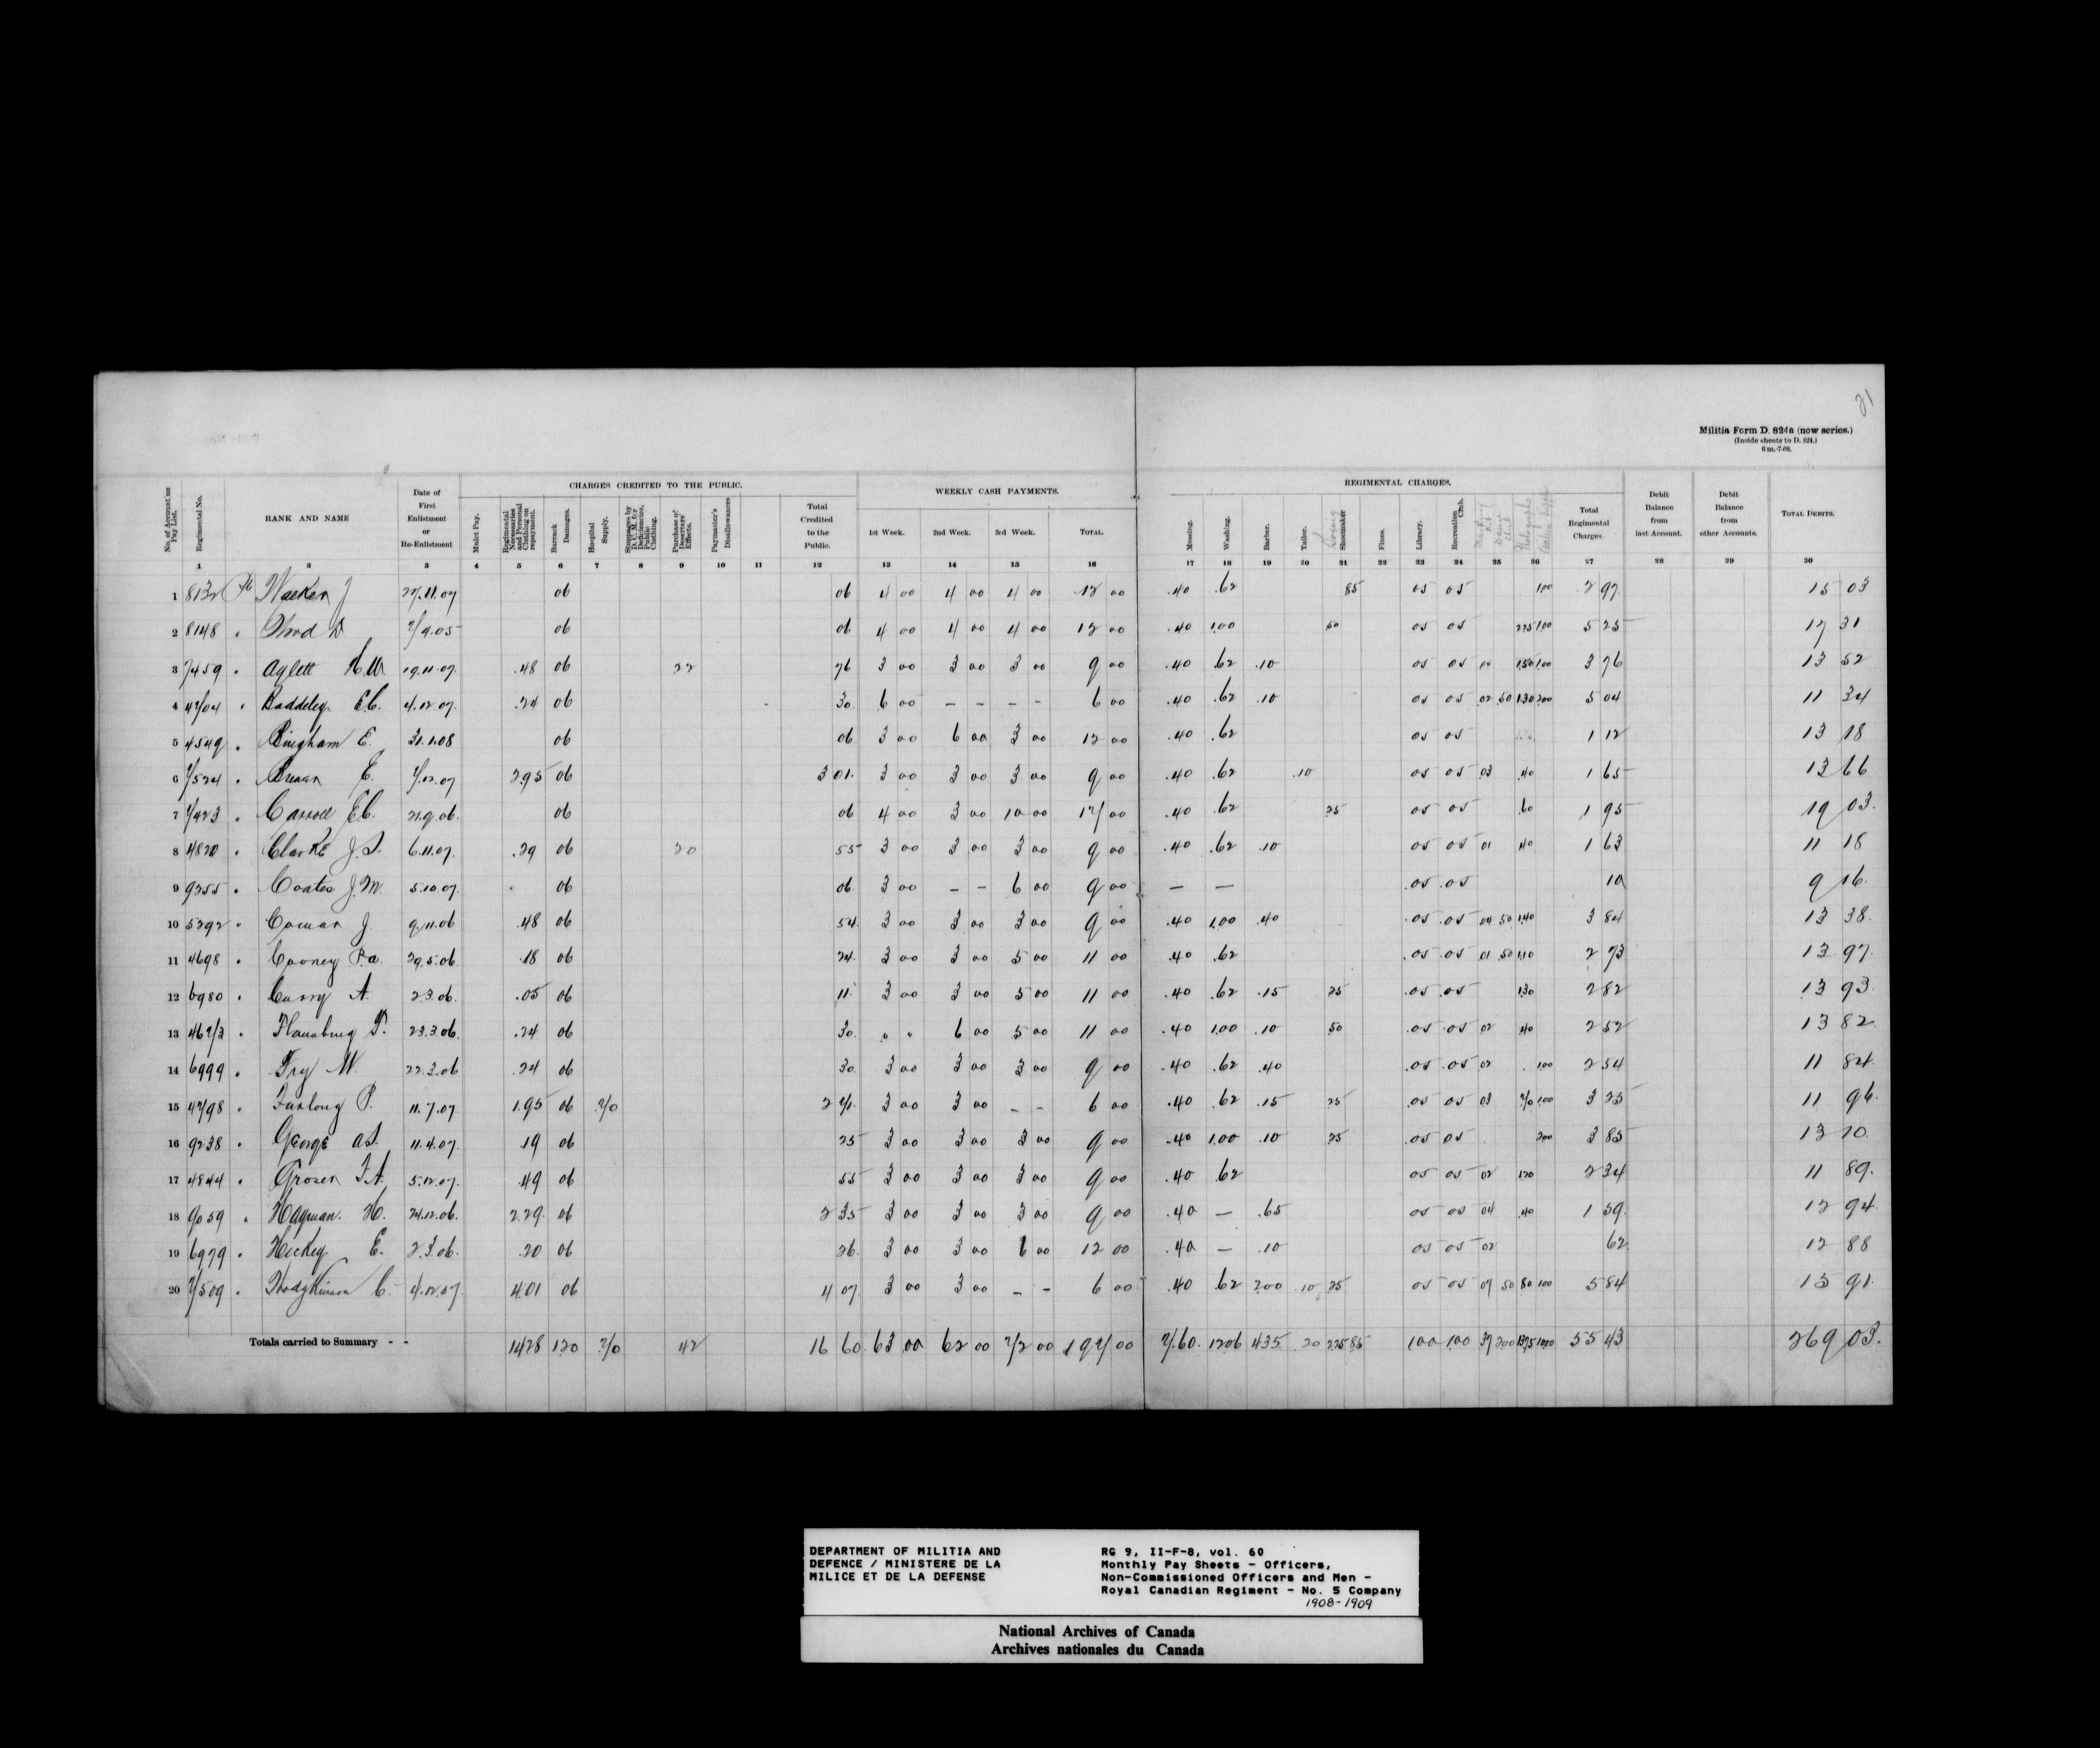 21
Militia Form D. 824a (new series.)
(Inside sheets to D. 824.)
6 m.-7-08.
CHARGES CREDITED TO THE PUBLIC. WEEKLY CASH PAYMENTS. REGIMENTAL CHARGES.
No. of Account on Pay List. Regimental No. RANK AND NAME Date of First Enlistment or Re-Enlistment Mulct Pay. Regimental Necessaries and Personal Clothing on repayment. Barrack Damages. Hospital Supply. Stoppages by D. C. M. for Deficiencies, Public Clothing. Purchase of Deserters' Effects. Paymaster's Disallowances Total Credited to the Public. 1st Week. 2nd Week. 3rd Week. TOTAL. Messing. Washing. Barber. Tailor. Sewing Shoemaker Fines. Library. Recreation Club. Total Regimental Charges. Debit Balance from last Account. Debit Balance from other Accounts. TOTAL DEBITS.
1 2 3 4 5 6 7 8 9 10 11 12 13 14 15 16 17 18 19 20 21 22 23 24 25 26 27 28 29 30
1 8132 Pte Walker J 27.11.07 06 06 4 00 4 00 4 00 12 00 .40 .62 85 05 05 1.00 2 97 15 03
2 8148 " Wood 7/4.05 06 06 4 00 4 00 4 00 12 00 .40 1.00 50 05 05 2.25 1.00 5 25 17 31
3 7459 " Aylett 19.11.07. .48 06 22 76 3 00 3 00 3 00 9 00 .40 .62 .10 05 05 04 1.50 1.00 3 76 13 52
4 4704 " Baddeley E.C. 4.12.07. .24 06 30 6 00 - - - - 6 00 .40 .62 .10 05 05 02 50 1.30 2.00 5 04 11 34
5 4549 " Bingham E. 31.1.08 06 06 3 00 6 00 3 00 12 00 .40 .62 05 05 1 12 13 18
6 7524 " E. 7.12.07 2.95 06 3 01 3 00 3 00 3 00 9 00 .40 .62 .10 05 05 03 .40 1 65 13 66
7 7423 " Carroll E.C. 21.9.06. 06 06 4 00 3 00 10 00 17 00 .40 .62 25 05 05 .60 1 95 19 03
8 4820 " Clarke J.S. 6.11.07. .29 06 20 55 3 00 3 00 3 00 9 00 .40 .62 .10 05 05 01 .40 1 63 11 18
9 9255 " Coates J.M. 5.10.07. 06 06 3 00 - - 6 00 9 00 — — .05 .05 10 9 16
10 5292 " Cowan J. 9.11.06 .48 06 54 3 00 3 00 3 00 9 00 .40 1.00 .40 .05 .05 04 50 1.40 3 84 13 38
11 4698 " Cooney P.A. 29.5.06. .18 06 24 3 00 3 00 5 00 11 00 .40 .62 .05 .05 01 .50 1.10 2 73 13 97
12 6980 " Curry A. 2.3.06. .05 06 11 3 00 3 00 5 00 11 00 .40 .62 .15 25 .05 .05 1.30 2 82 13 93
13 4673 " Flansburg 23.3.06. .24 06 30 " " 6 00 5 00 11 00 .40 1.00 .10 50 .05 .05 02 .40 2 52 13 82
14 6999 " Fry W. 22.3.06 .24 06 30 3 00 3 00 3 00 9 00 .40 .62 .40 .05 .05 02 1.00 2 54 11 84
15 4798 " Furlong P. 11.7.07. 1.95 06 .70 2 71 3 00 3 00 - - 6 00 .40 .62 .15 25 .05 05 03 .70 1.00 3 25 11 96
16 9238 " George A.S. 11.4.07. .19 06 25 3 00 3 00 3 00 9 00 .40 1.00 .10 25 .05 05 2.00 3 85 13 10
17 4844 " Groser 5.12.07. .49 06 55 3 00 3 00 3 00 9 00 .40 .62 05 05 02 1.20 2 34 11 89
18 9059 " Hayman. H. 24.12.06. 2.29. 06 2 35 3 00 3 00 3 00 9 00 .40 — .65 05 05 04 .40 1 59 12 94
19 6979 " Hickey E. 2.3.06. .20 06 26 3 00 3 00 6 00 12 00 .40 — .10 05 05 02 62 12 88
20 7509 " Hodgkinson C. 4.12.07. 4.01 06 4 07 3 00 3 00 - - 6 00 .40 .62 2.00 .10 25 05 05 07 50 80 1.00 5 84 15 91
Totals carried to Summary - - 14.28 1.20 .70 42 16 60 63 00 62 00 72 00 197 00 7.60 12.06 4.35 .20 2.25 85 1.00 1.00 37 2.00 13.75 10.00 55 43 269 03.
DEPARTMENT OF MILITIA AND
DEFENCE / MINISTERE DE LA
MILICE ET DE LA DEFENSE
RG 9, II-F-8, vol. 60
Monthly Pay Sheets - Officers,
Non-Commissioned Officers and Men -
Royal Canadian Regiment - No. 5 Company
1908-1909
National Archives of Canada
Archives nationales du Canada